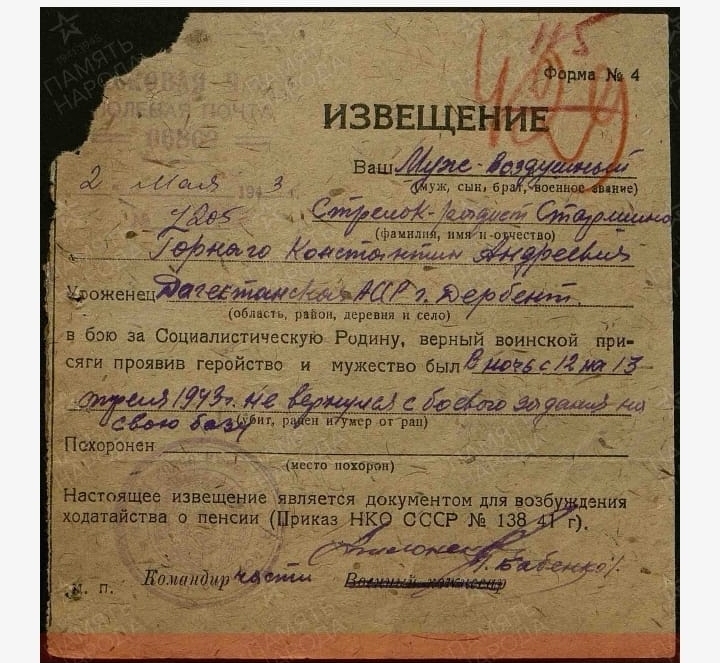 ПАМЯТЬ
НАРОДА
ПОЛЕВАЯ ПОЧТА
Форма № 4
ИЗВЕЩЕНИЕ
Ваш Муж - Воздушный
(муж, сын, брат, военное звание)
2 мая 1943
№ 7205 Стрелок-радист Старшина
(фамилия, имя и отчество)
Горнаго Константин Андреевич
Уроженец Дагестанской АССР г. Дербент.
(область, район, деревня и село)
в бою за Социалистическую Родину, верный воинской при-
сяги проявив геройство и мужество был В ночь с 12 на 13
апреля 1943г. не вернулся с боевого задания на
свою базу
(убит, ранен и умер от ран)
Похоронен
(место похорон)
Настоящее извещение является документом для возбуждения
ходатайства о пенсии (Приказ НКО СССР № 138 41 г).
/Бабенко/.
М. п. Командир части Военный комиссар